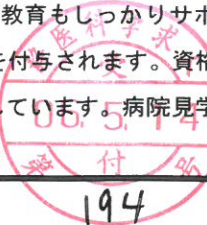 教育もしっかりサポ
を付与されます。資格
しています。病院見学
医科学求
受
06.5.14
第 付 号
194